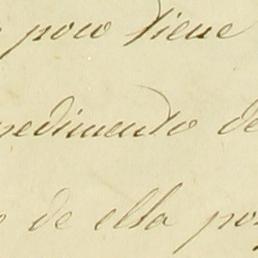 poco tiene
pedimento de
de ella por